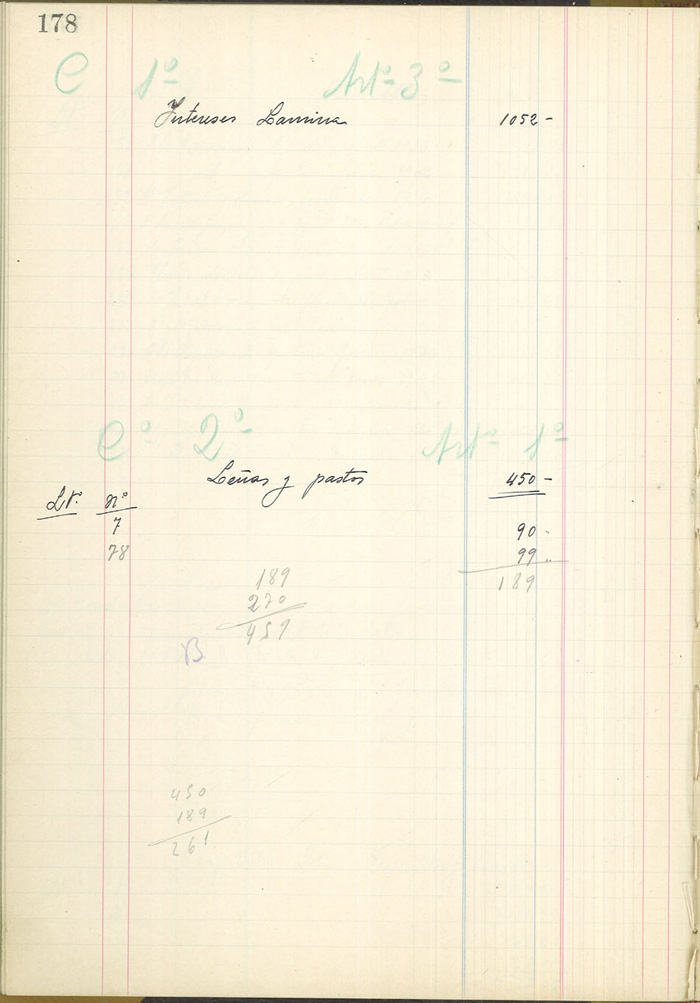 178
C 1º Artº 3º
Intereses Lamina 1052-
Cº 2º Artº 1º
Leñas y pastos 450-
Lº. nº
7 90-
78 99"
189
189
270
459
B
450
189
261